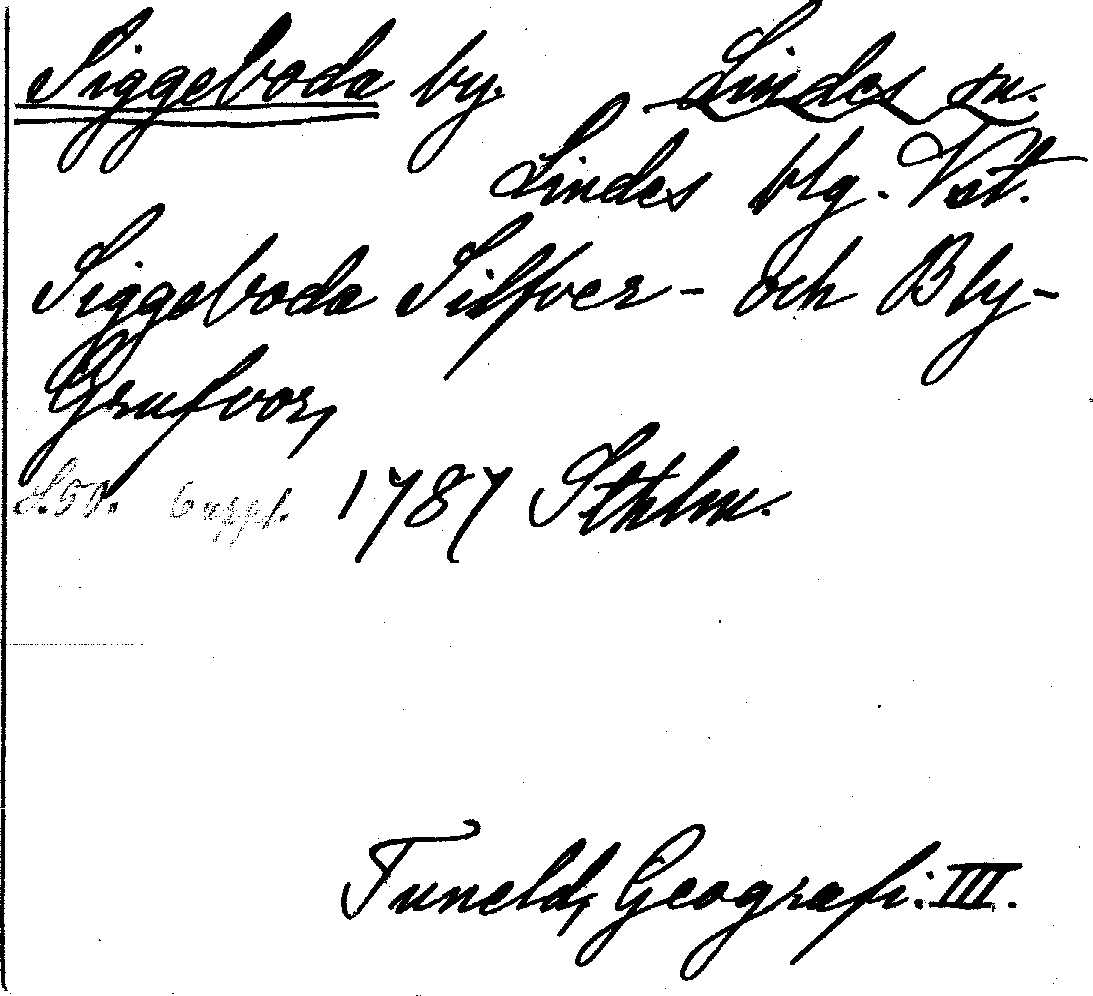 Siggeboda by. Lindes sn.
Lindes blg. Vst.
Siggeboda Silfver- och Bly-
Grufvor,
S.50. 6 uppl. 1787 Sthlm.
Tuneld, Geografi. III.